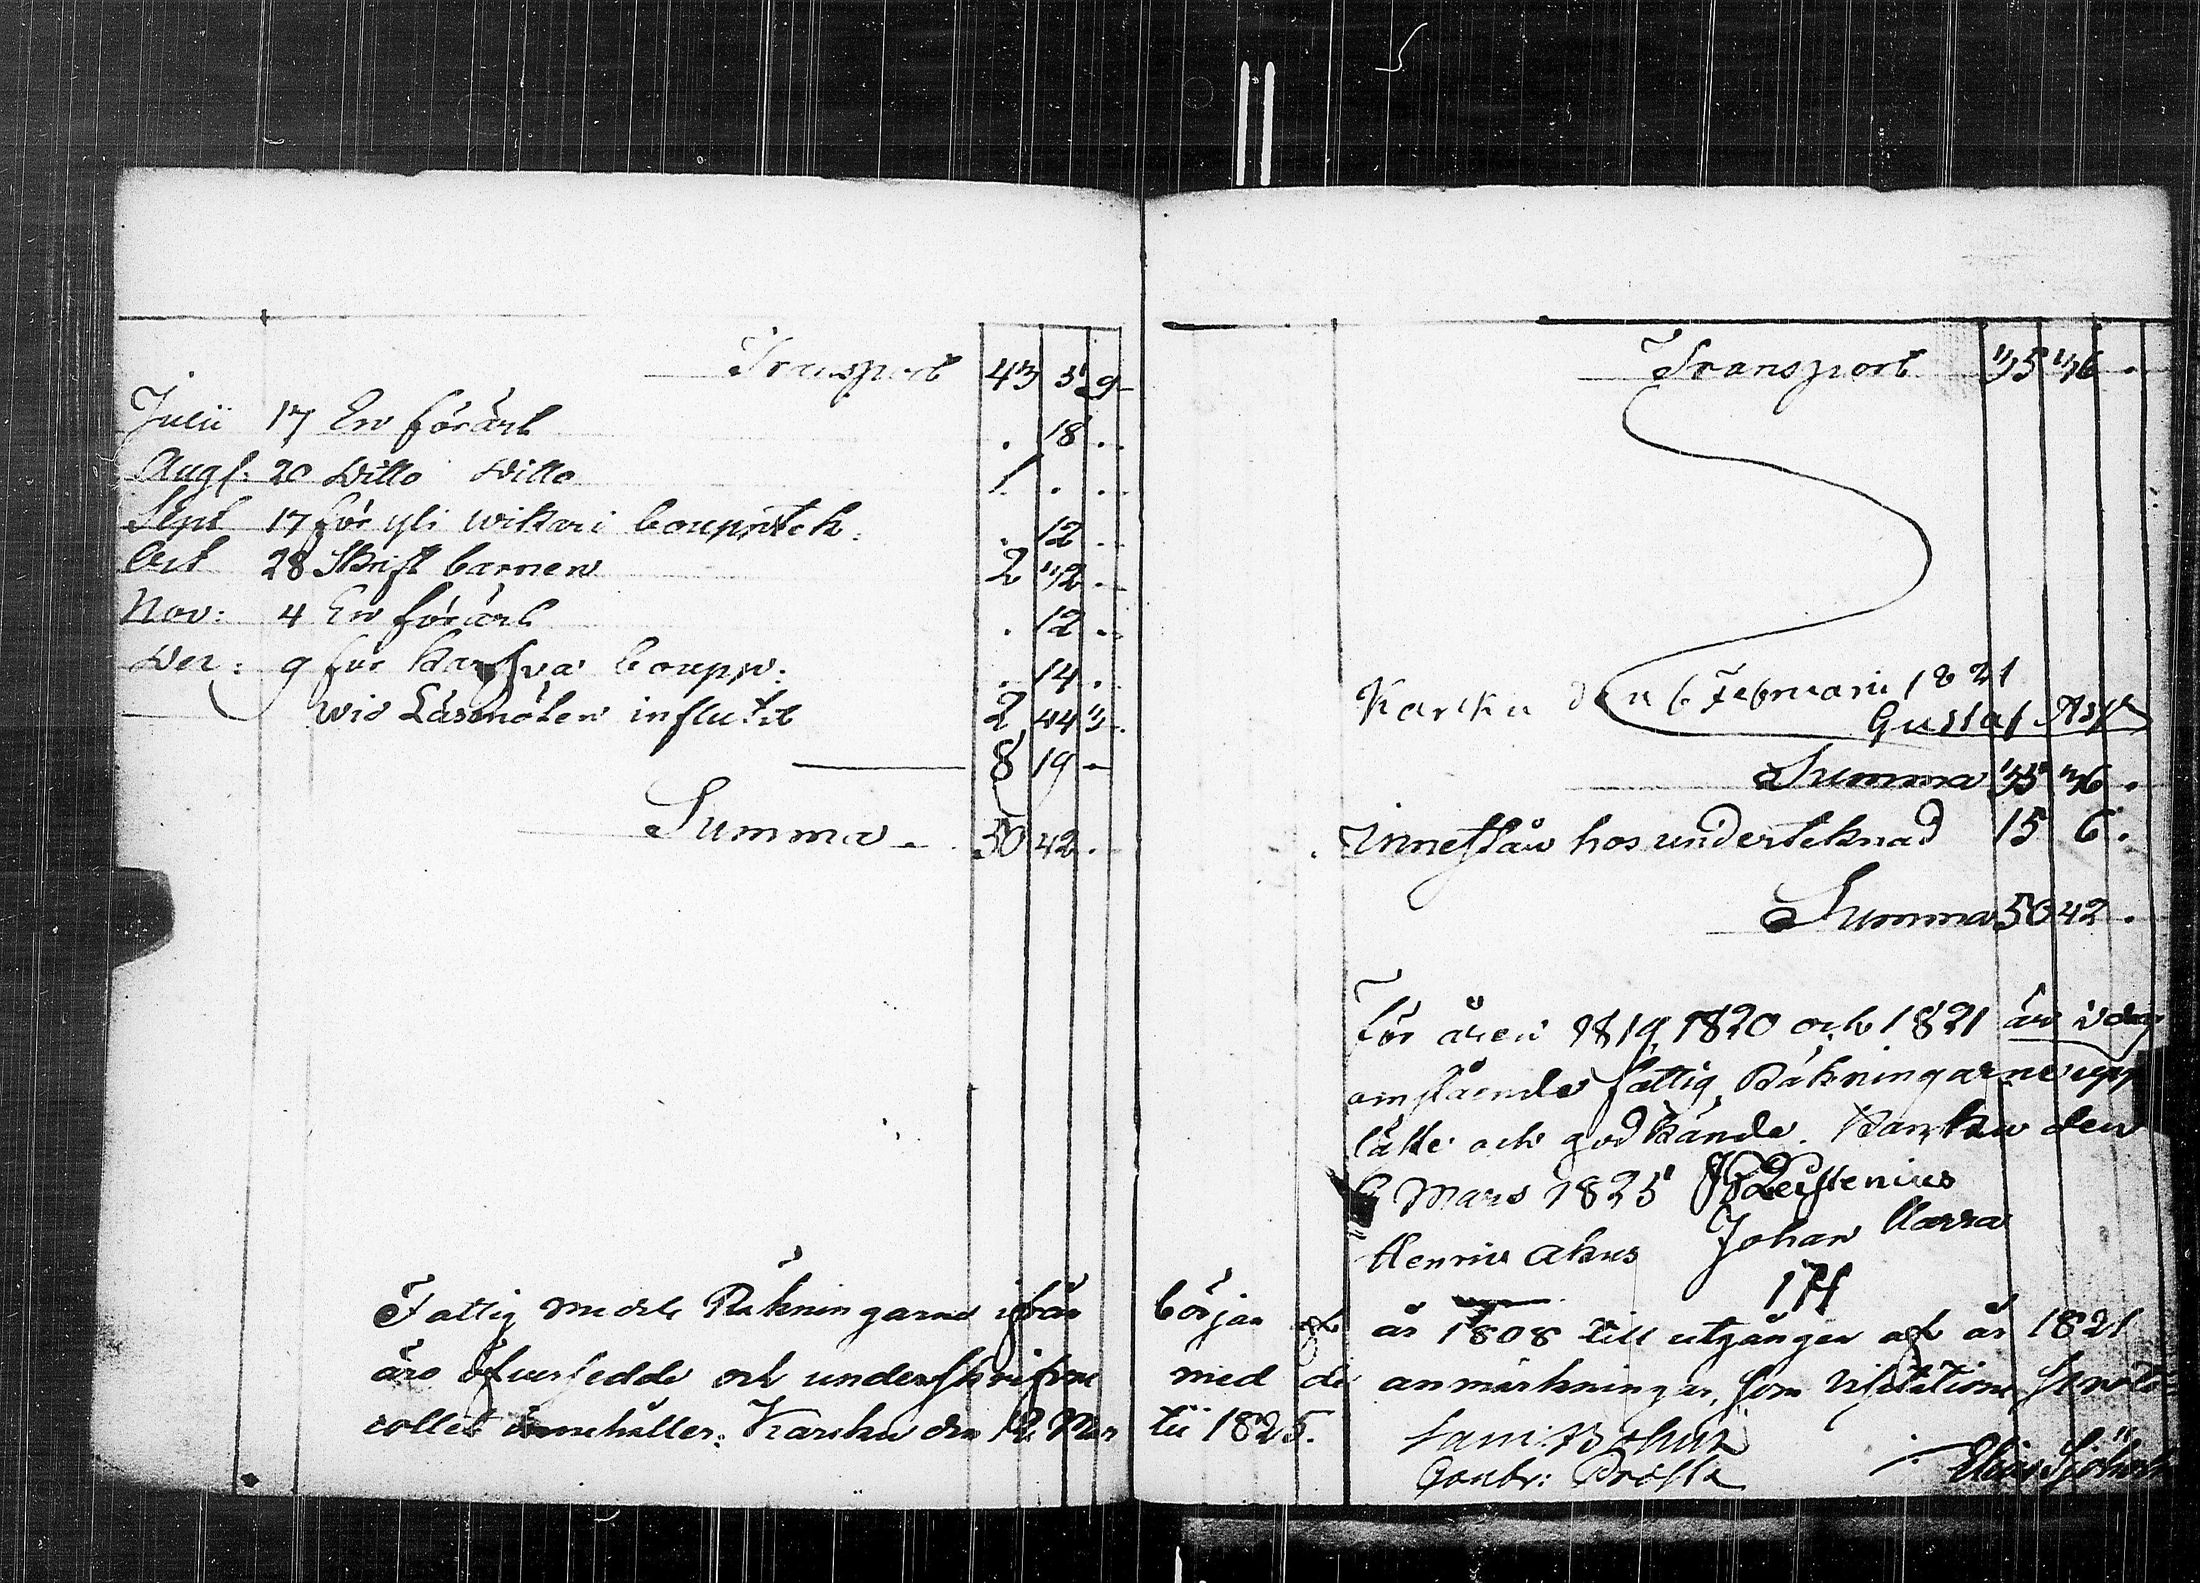 Transport 43 5 9
Julii 17 En förärt . 18 .
Augs. 20 Ditto Ditto 1 . .
Sept 17 för yli wikari bouppteck: . 12 .
Oct 28 Skrift barnen 2 12 .
Nov: 4 En förärt . 12 .
Dec: 9 för boupp: . 14 .
wid Läsmöten influtit 2 44 3
8 19
Summa 50 42 .
Transport 35 36 .
Karku den 6 Februarii 1821
Gustaf
Summa 35 36 .
Innestår hos undertecknad 15 6 .
Summa 50 42 .
För åren 1819, 1820 och 1821 äro i dag
omstående fattig Räkningarne upp
läste och godkände. Karku den
6 Mars 1825 Leistenius
Henric Akus Johan
Fattig medels Räkningarne ifrån början af år 1808 till utgången af år 1821
äro öfversedde och underskrifne med de anmärkningar, som Visitations Proto
collet innehåller. Karku den 12 Mar tii 1825.
Contr: Prost Elias